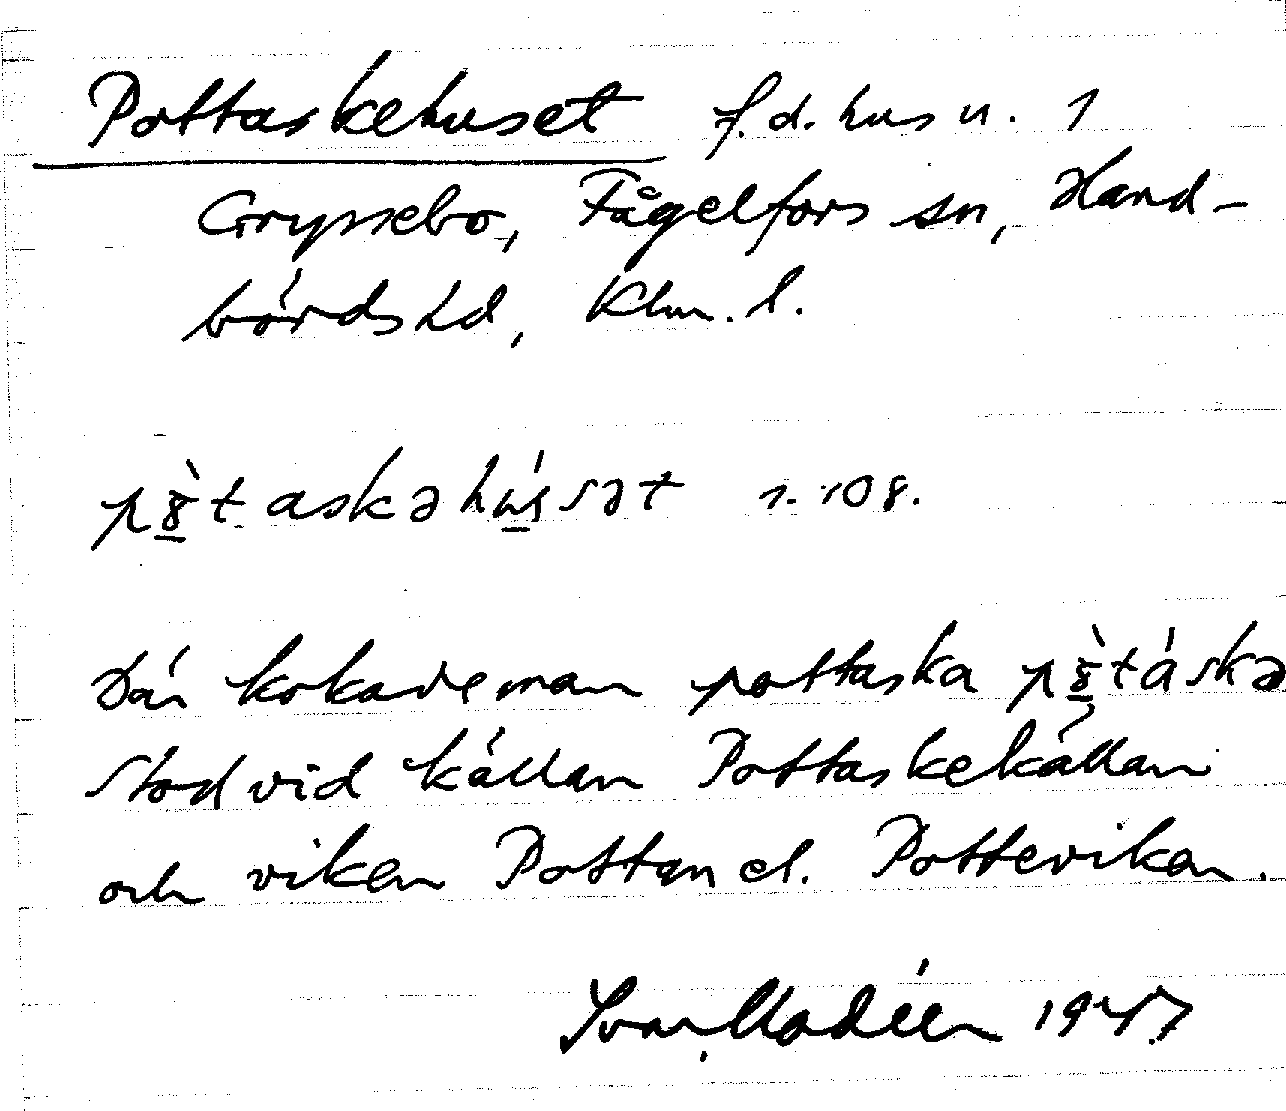 Pottaskehuset f.d. hus u. 1
Grypsebo, Fågelfors sn, Hand-
börds hd, Klm. l.
s. 108.
Där kokade man pottaska
stod vid källan Pottaskekällan
och viken Pottan el. Potteviken.
Ivar Modéer 1947